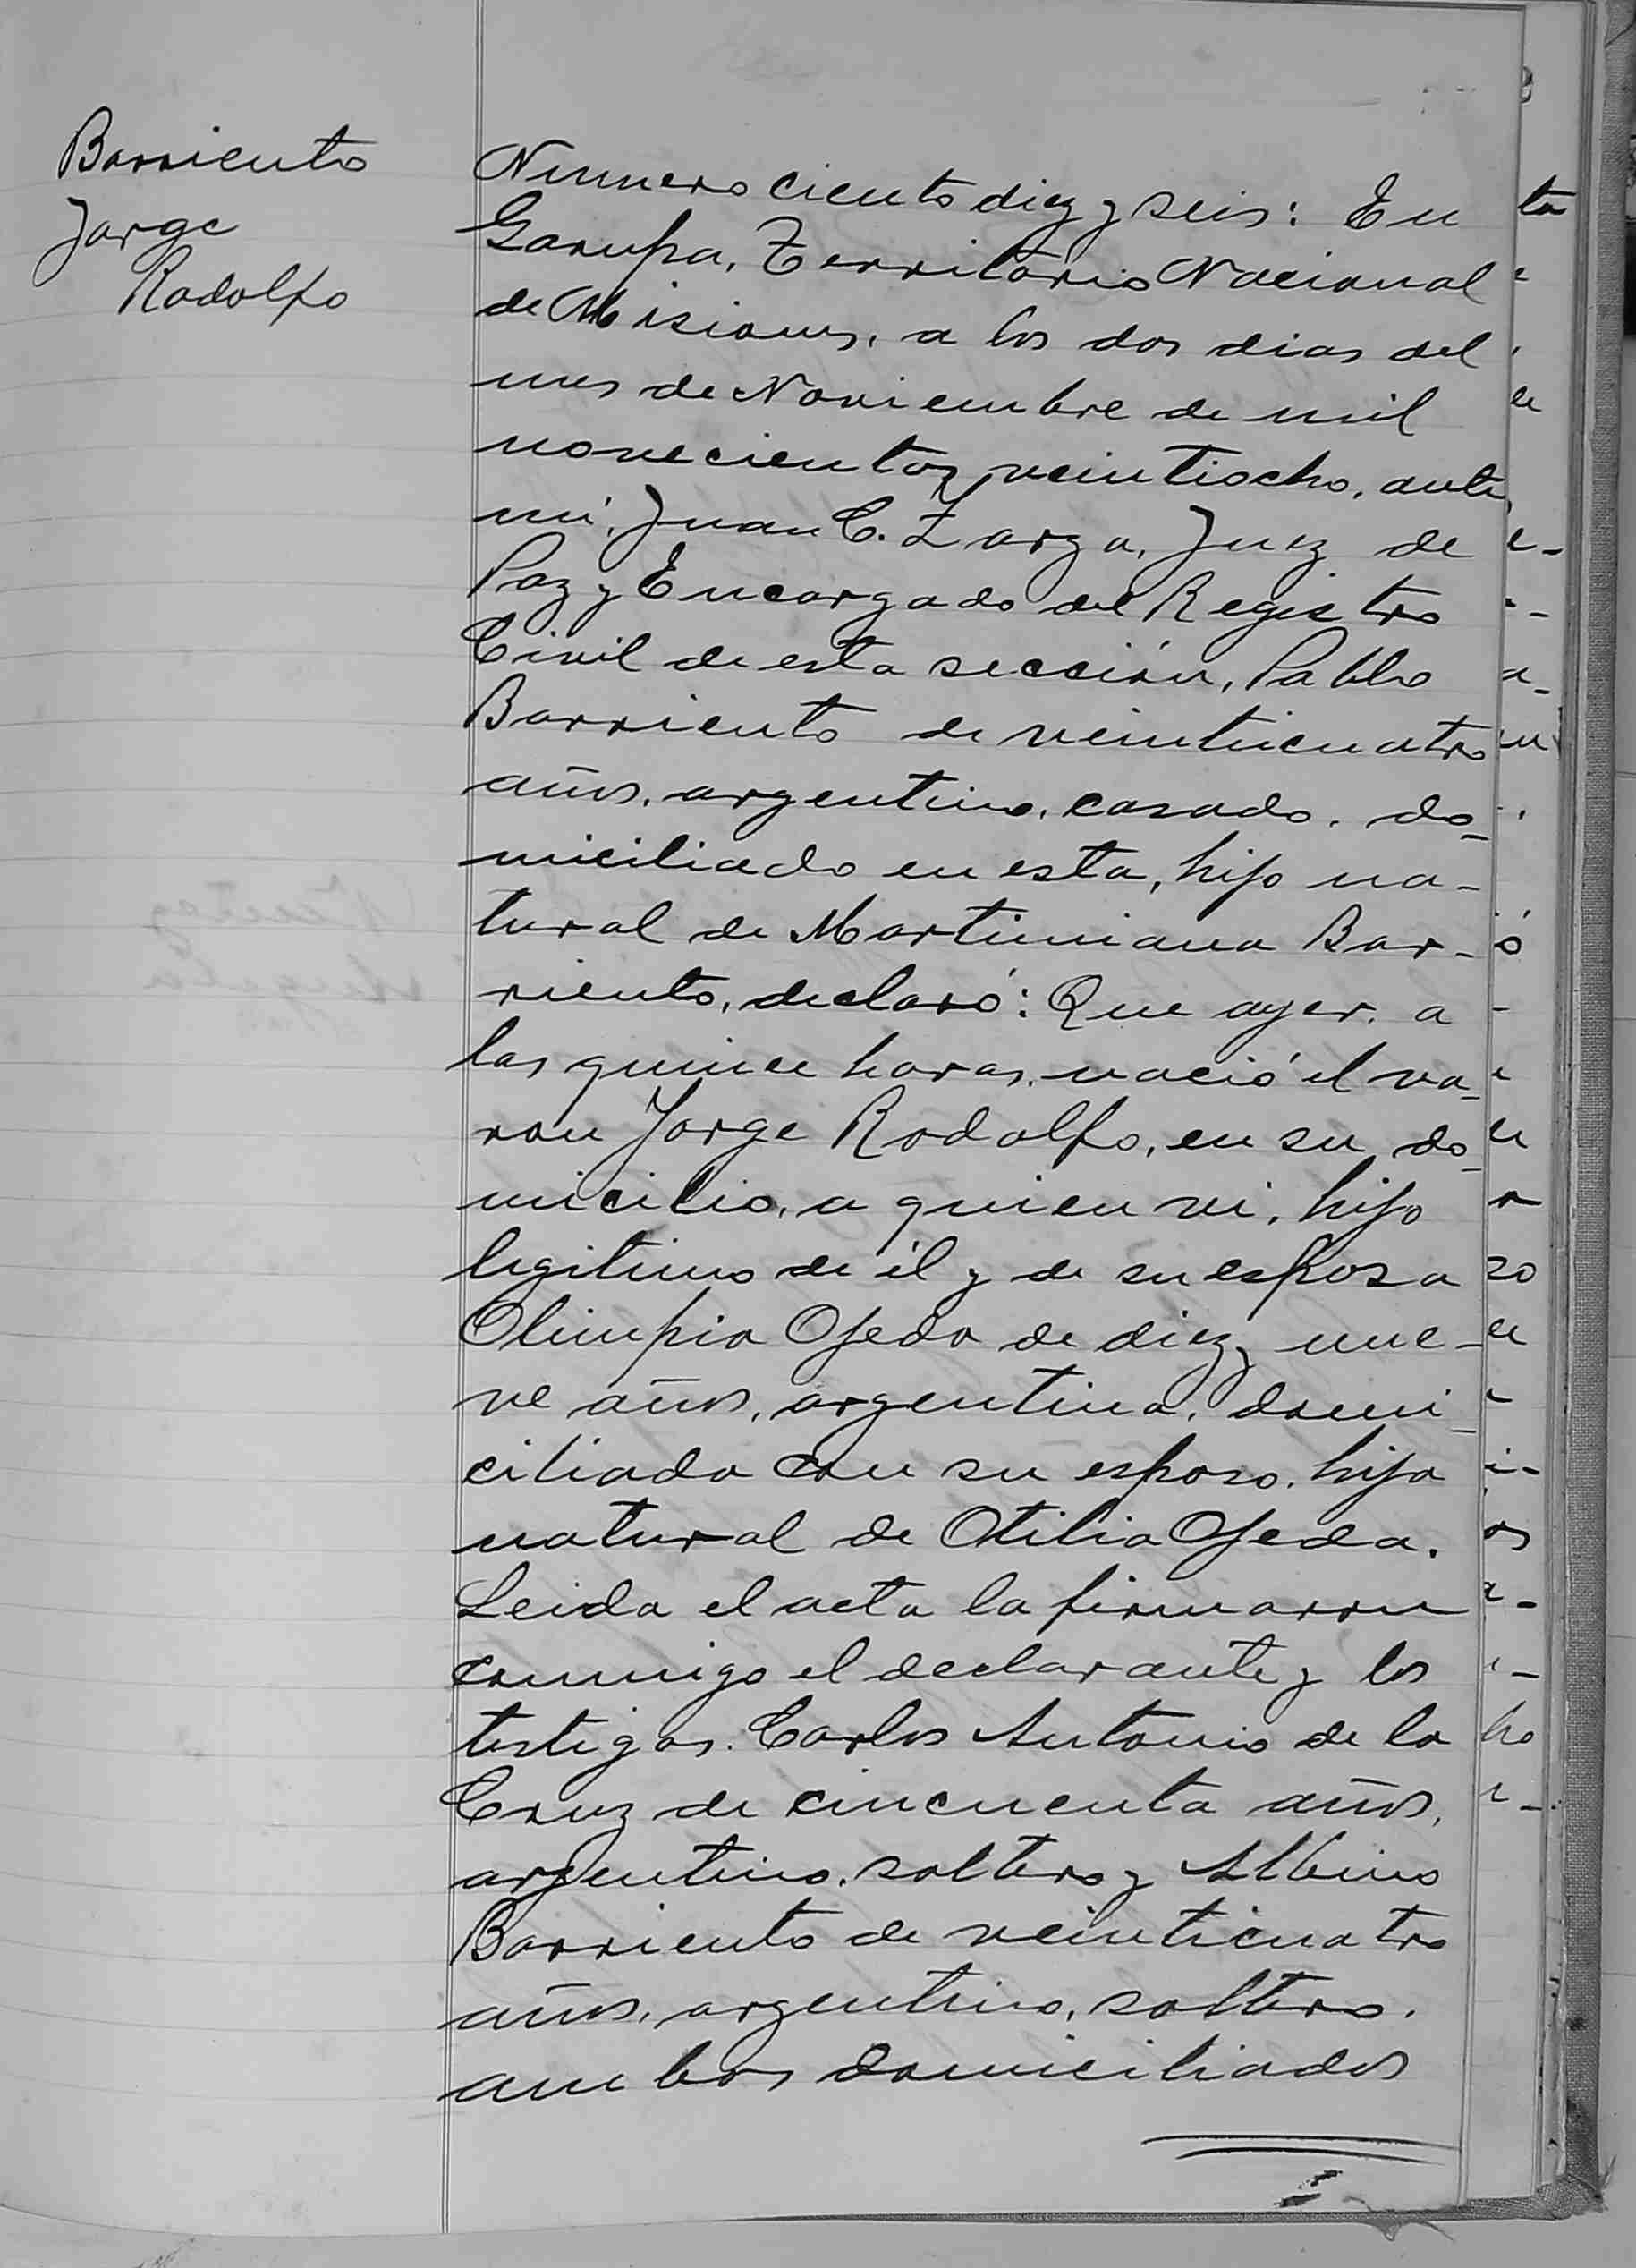 Barriento
Jorge
Rodolfo
Numero ciento diez y seis: En
Garupa, Territorio Nacional
de Misiones, a los dos dias del
mes de Noviembre de mil
novecientos veintiocho, ante
mi, Juan C. Zarza, Juez de
Paz y Encargado del Registro
Civil de esta sección, Pablo
Barriento de veinticuatro
años, argentino, casado, do-
miciliado en esta, hijo na-
tural de Martiniana Bar-
riento, declaró: Que ayer, a
las quince horas, nació el va-
ron Jorge Rodolfo, en su do-
micilio, a quien vi, hijo
legitimo de él y de su esposa
Olimpia Ojeda de diez y nue-
ve años, argentina, domi-
ciliada con su esposo, hija
natural de Otilia Ojeda.
Leida el acta la firmaron
conmigo el declarante y los
testigos: Carlos Antonio de la
Cruz de cincuenta años,
argentino, soltero y Albino
Barriento de veinticuatro
años, argentino, soltero,
ambos domiciliados